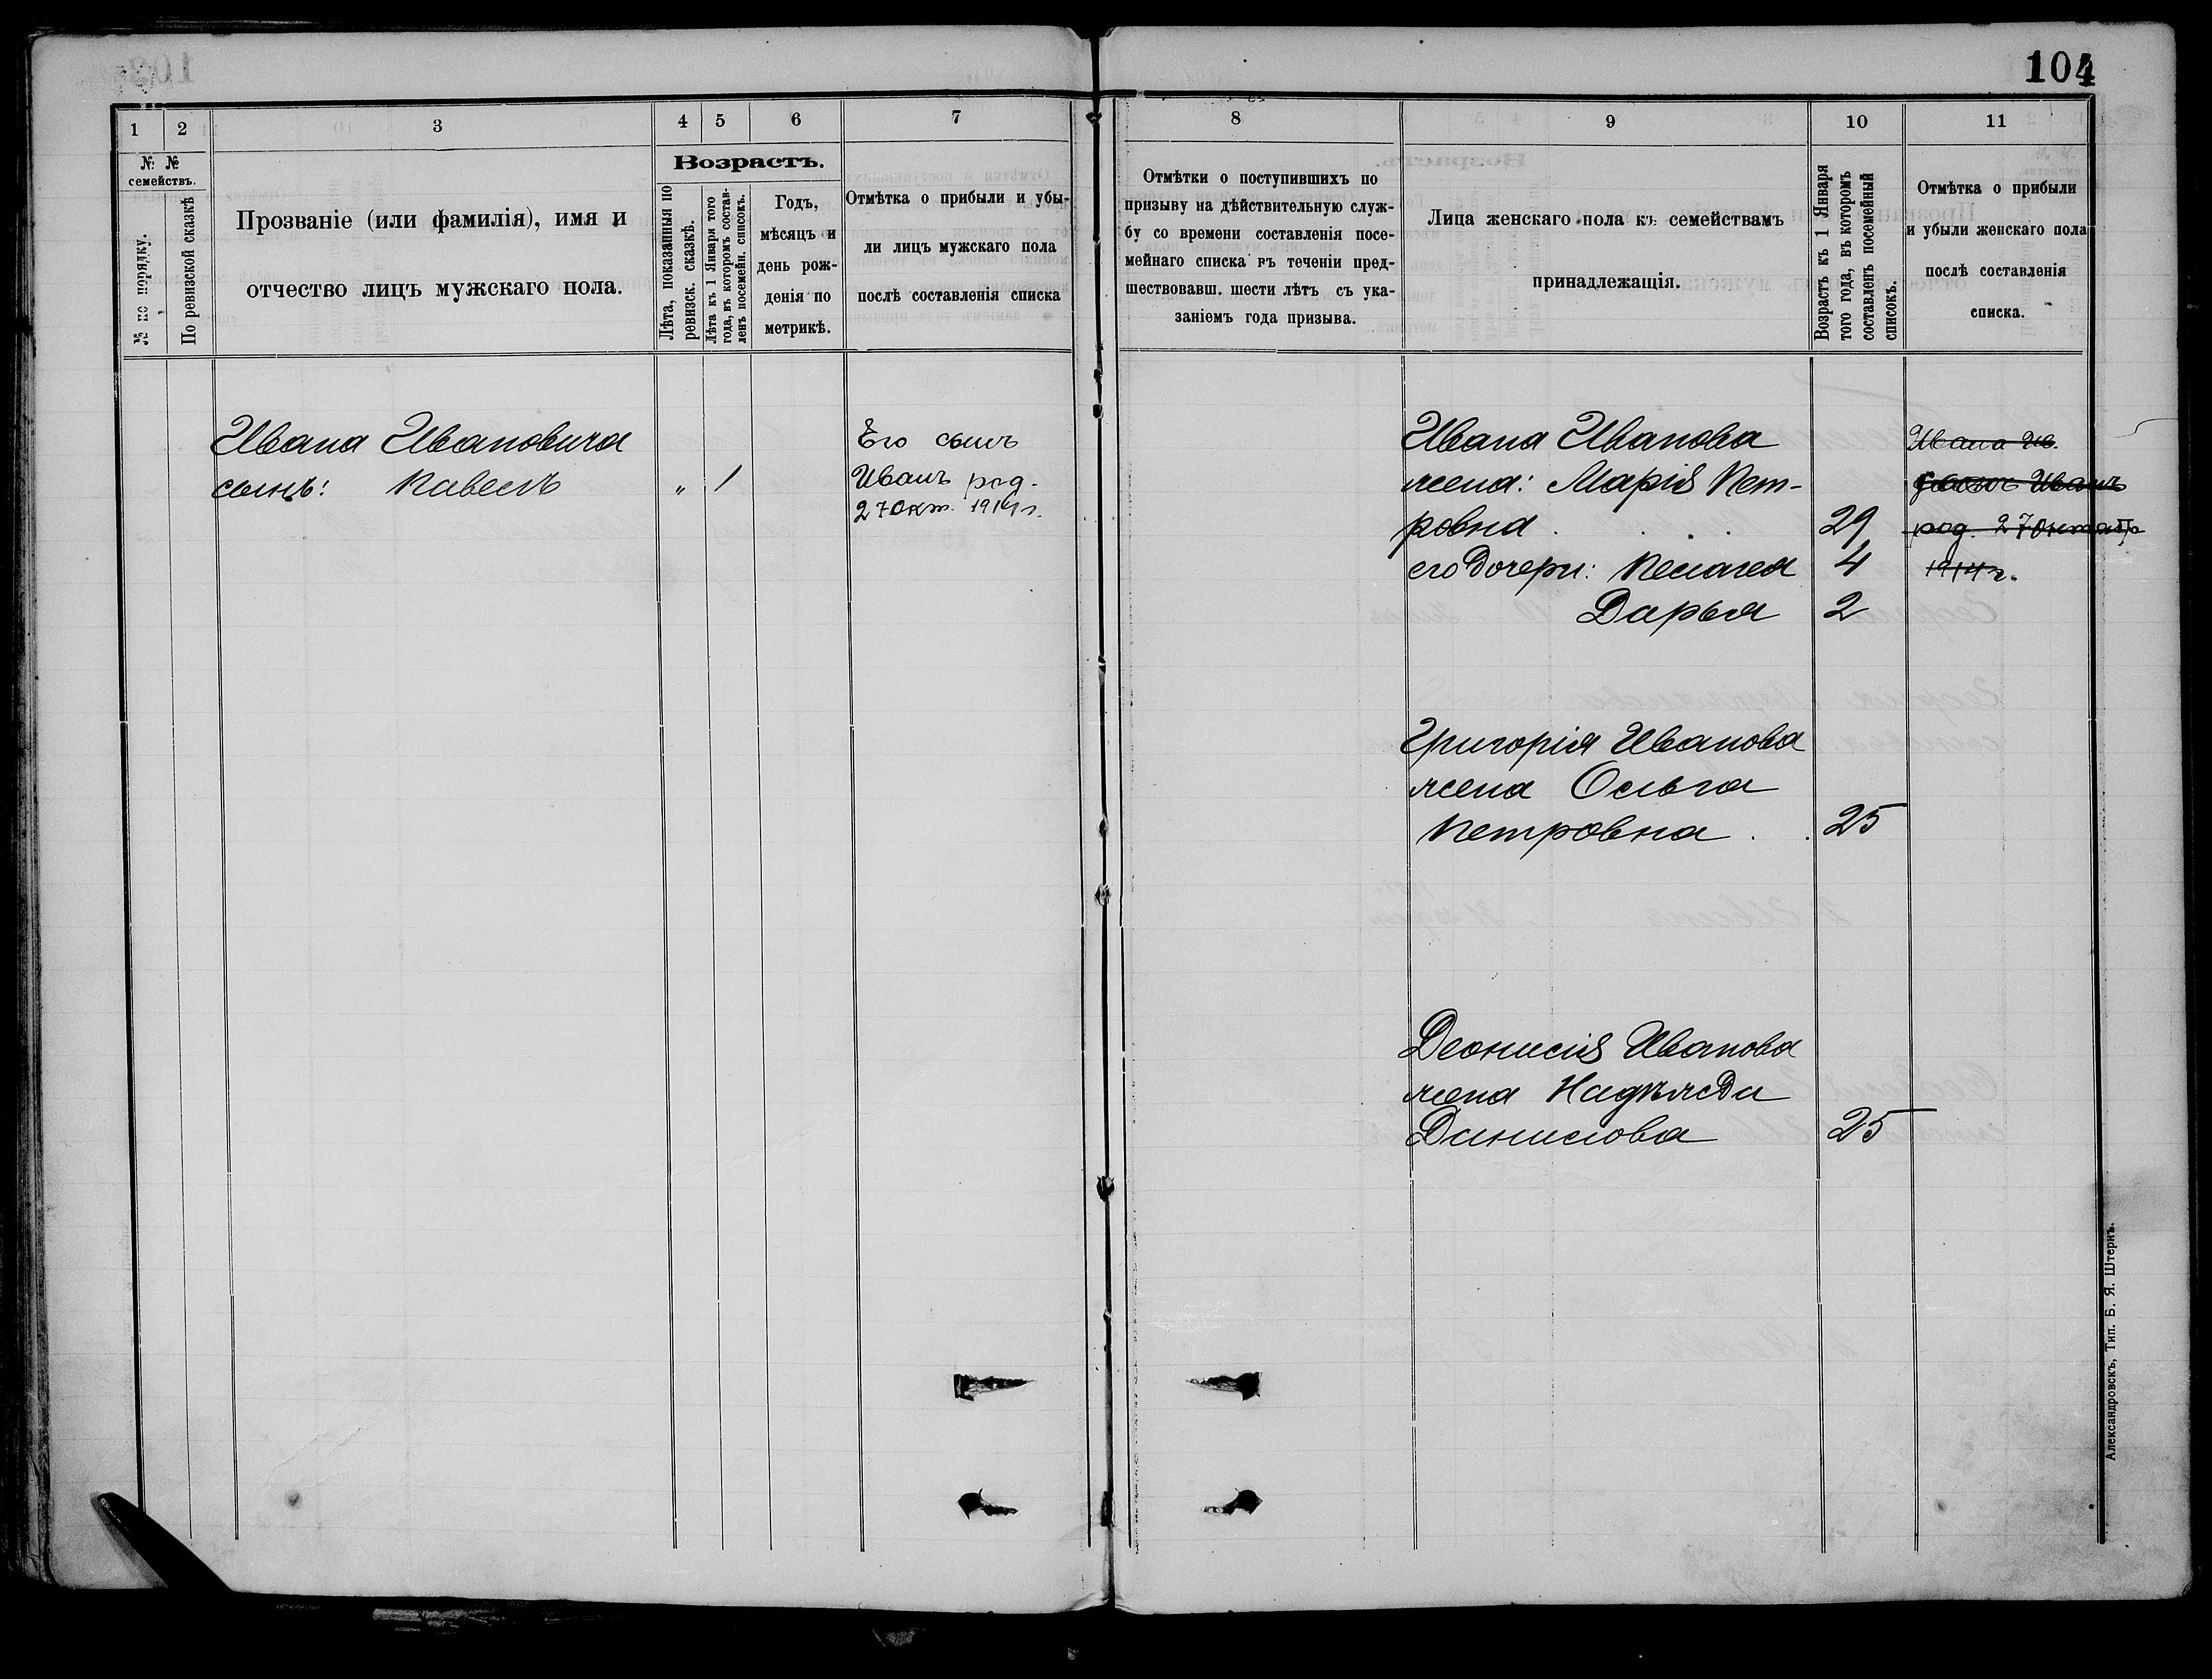 104
1
2
3
4
5
6
7
№ № семействъ.
№ по порядку.
По ревизской сказкѣ
Прозваніе (или фамилія), имя и
отчество лицъ мужскаго пола.
Возрастъ.
Лѣта, показанныя по
ревизск. сказкѣ.
Лѣта къ 1 Января того
года, въ которомъ состав-
ленъ посемейн. списокъ.
Годъ,
мѣсяцъ и
день рож-
денія по
метрикѣ.
Отмѣтка о прибыли и убы-
ли лицъ мужскаго пола
послѣ составленія списка
Ивана Ивановича
сынъ: Павелъ " 1
Его сынъ
Иванъ род.
27 Окт. 1914 г.
8
9
10
11
Отмѣтки о поступившихъ по
призыву на дѣйствительную служ-
бу со времени составленія посе-
мейнаго списка въ теченіи пред-
шествовавш. шести лѣтъ съ ука-
заніемъ года призыва.
Лица женскаго пола къ семействамъ
принадлежащія.
Возрастъ къ 1 Января
того года, въ которомъ
составленъ посемейный
списокъ.
Отмѣтка о прибыли
и убыли женскаго пола
послѣ составленія
списка.
Ивана Иванова
жена: Марія Пет-
ровна . . . 29
его Дочери: Пелагея 4
Дарья 2
Ивана Ив.
Иванъ
род. 27 Октября
1914 г.
Григорія Иванова
жена Ольга
Петровна . . 25
Деонисія Иванова
жена Надѣжда
Данилова 25
Александровскъ, Тип. Б. Я. Штернъ.